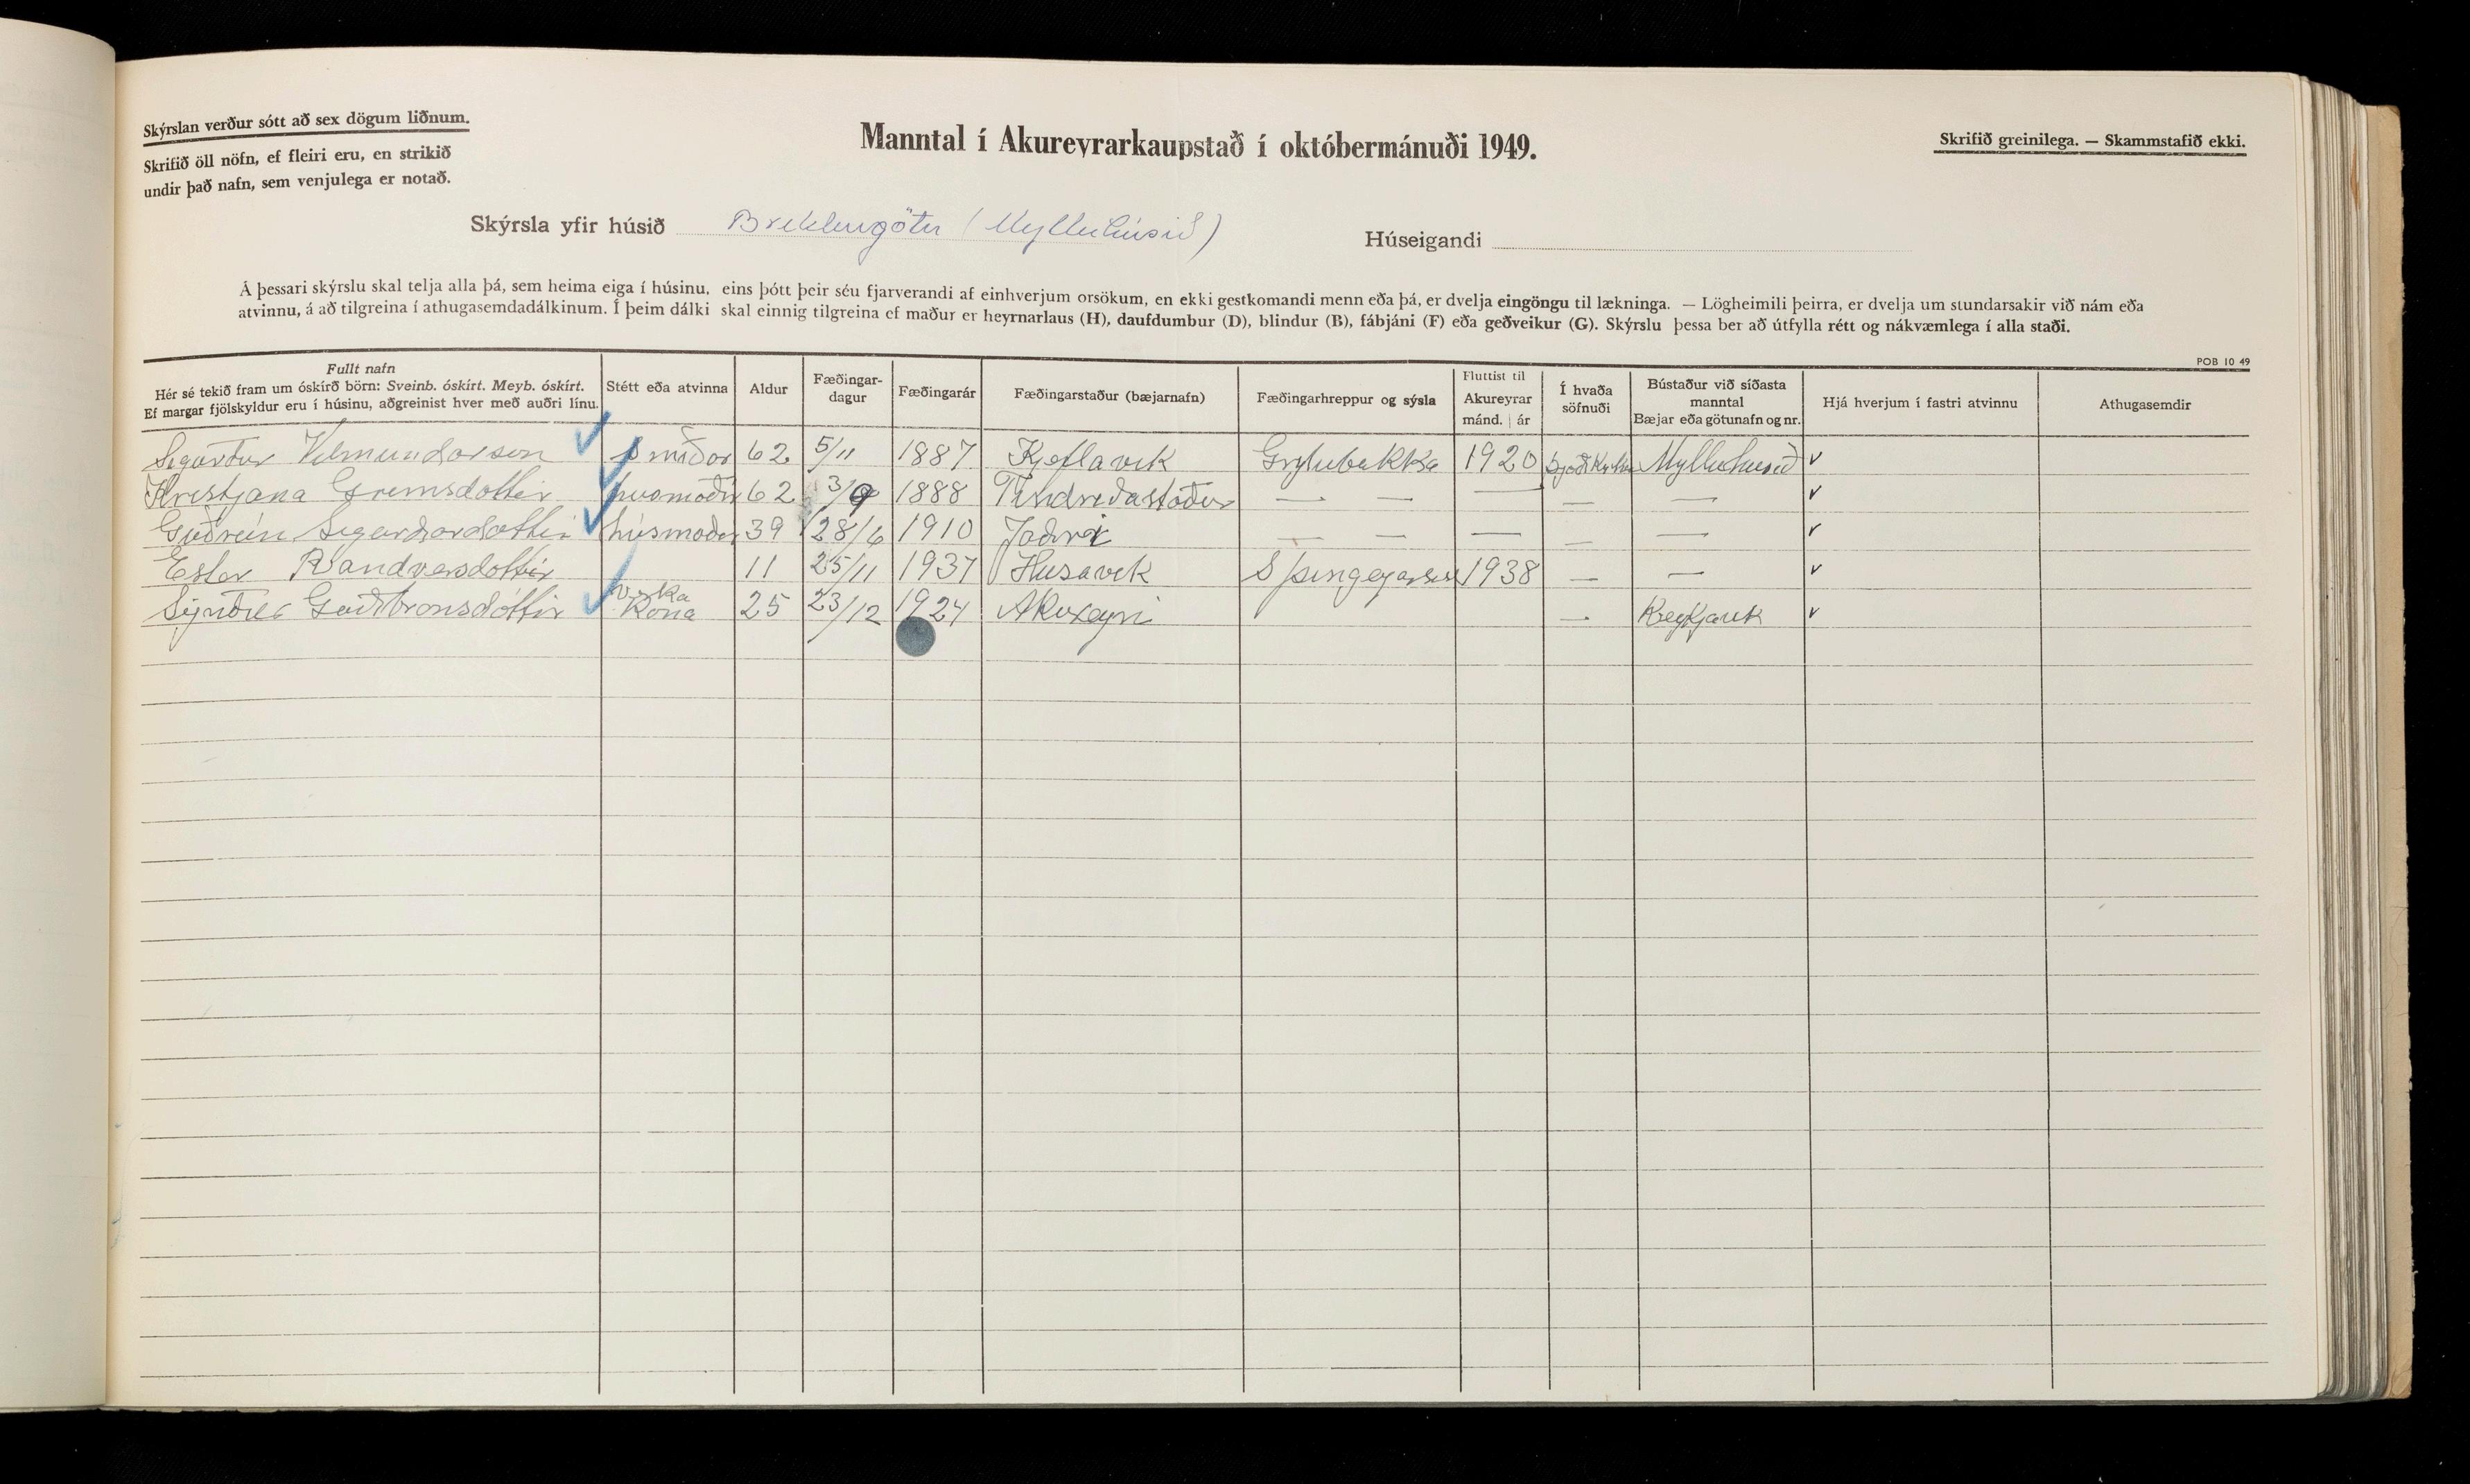 Skýrslan verður sótt að sex dögum liðnum.
Skrifið öll nöfn, ef fleiri eru, en strikið
undir það nafn, sem venjulega er notað.
Manntal í Akureyrarkaupstað í októbermánuði 1949.
Skrifið greinilega. — Skammstafið ekki.
Skýrsla yfir húsið Brekkugötu (Mylluhúsið)
Húseigandi
Á þessari skýrslu skal telja alla þá, sem heima eiga í húsinu, eins þótt þeir séu fjarverandi af einhverjum orsökum, en ekki gestkomandi menn eða þá, er dvelja eingöngu til lækninga. — Lögheimili þeirra, er dvelja um stundarsakir við nám eða
atvinnu, á að tilgreina í athugasemdadálkinum. Í þeim dálki skal einnig tilgreina ef maður er heyrnarlaus (H), daufdumbur (D), blindur (B), fábjáni (F) eða geðveikur (G). Skýrslu þessa ber að útfylla rétt og nákvæmlega í alla staði.
POB 10 49
Fullt nafn
Hér sé tekið fram um óskírð börn: Sveinb. óskírt. Meyb. óskírt.
Ef margar fjölskyldur eru í húsinu, aðgreinist hver með auðri línu.
Stétt eða atvinna
Aldur
Fæðingar-
dagur
Fæðingarár
Fæðingarstaður (bæjarnafn)
Fæðingarhreppur og sýsla
Fluttist til
Akureyrar
mánd. | ár
Í hvaða
söfnuði
Bústaður við síðasta
manntal
Bæjar eða götunafn og nr.
Hjá hverjum í fastri atvinnu
Athugasemdir
Sigurður Vilmundarson smiður 62 5/11 1887 Keflavik Grytubakka 1920 þjóðkirkju Mylluhusið v
Kristjana Grimsdottir husmoðir 62 3/9 1888 Tindriðastöður — — — — — v
Guðrún Sigurðardottir húsmoðir 39 28/6 1910 Jaðri — — — — — v
Ester Randversdottir 11 25/11 1937 Husavik S þingeyarsis 1938 — — v
Guðbransdóttir Virka
Kona 25 23/12 1924 Akureyri — Reykjavik v